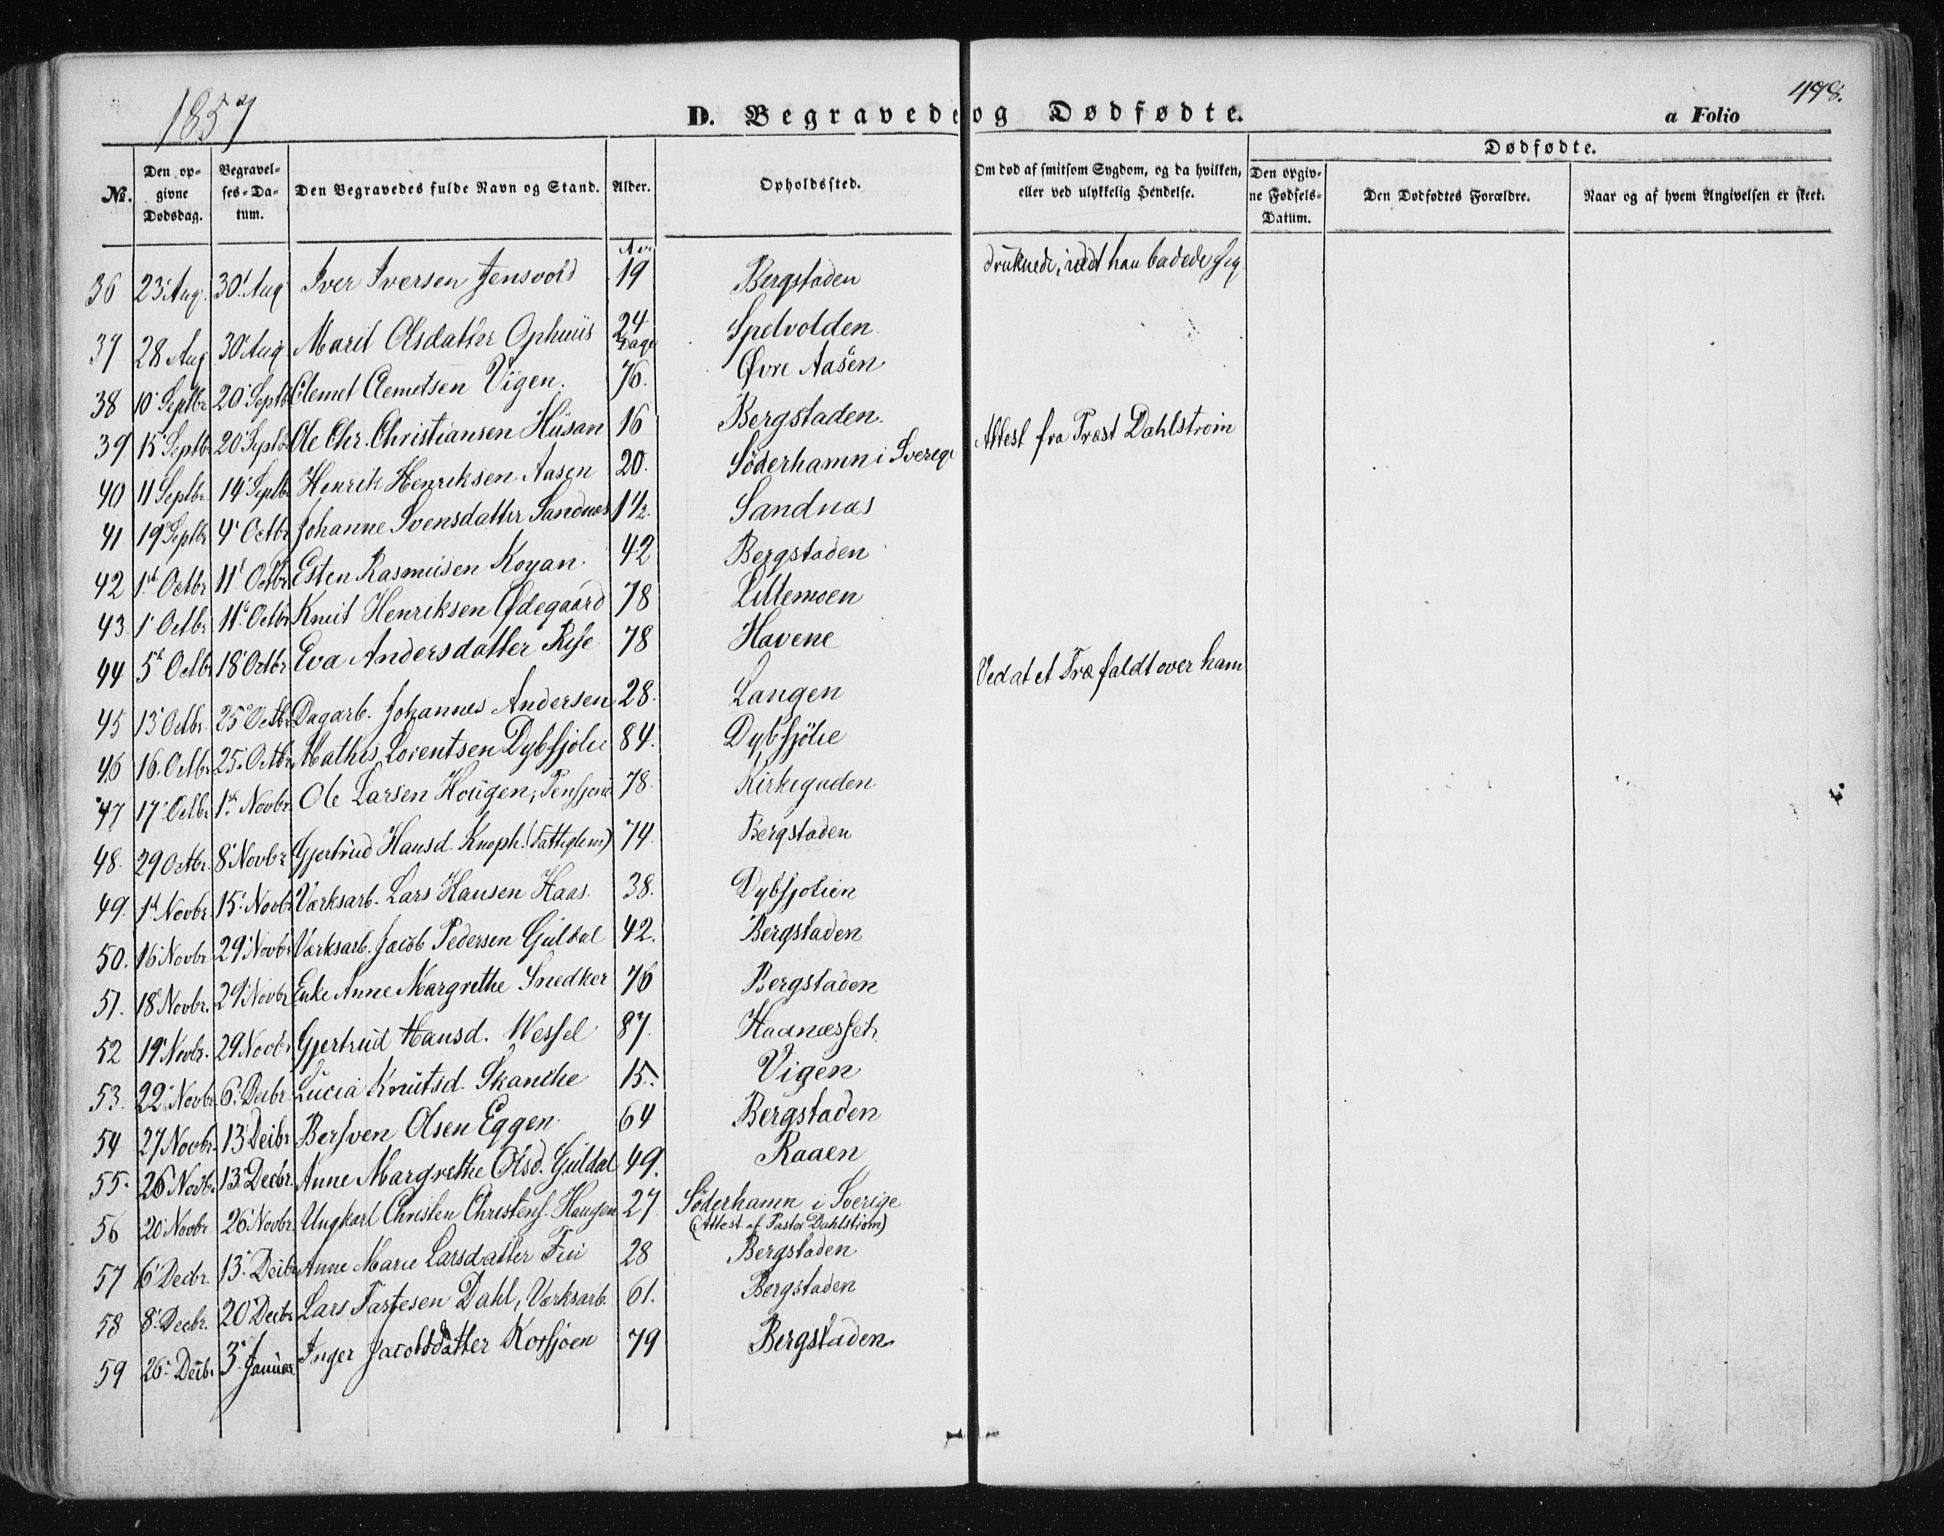 1857
498.
D. Begravede og Dødfødte.
a Folio
No.
Den opgivne Dødsdag.
Begravelses-Datum.
Den Begravedes fulde Navn og Stand.
Alder.
Opholdssted.
Om død af smitsom Sygdom, og da hvilken, eller ved ulykkelig Hendelse.
Dødfødte.
Den opgivne Fødsels-Datum.
Den Dødfødtes Forældre.
Naar og af hvem Angivelsen er skeet.
36 23 Aug. 30 Aug Iver Iversen Jensvold 19 Bergstaden druknede, idet han badede sig
37 28 Aug 30 Aug Marit Olsdatter Ophuus 24 Dage Spelvolden
38 10 Septbr 20 Septb Clemet Clemetsen Vigen. 76. Øvre Aasen
39 15 Septbr 20 Septb Ole Chr. Christiansen Husan 16 Bergstaden.
40 11 Septbr. 14 Septb Henrik Henriksen Aasen 20. Söderhamn i Sverige Attest fra Præst Dahlstrøm
41 19 Septbr 4 Octbr Johanne Svensdatter Sandnæs 1½. Sandnæs
42 1st Octbr 11t Octbr Esten Rasmusen Koyan. 42 Bergstaden
43 1 Octbr 11t Octbr Knut Henriksen Ødegaard 78 Lillemoen
44 5t Octbr 18 Octbr Eva Andersdatter Rise 78 Havene
45 13 Octbr. 25 Octbr Dagarb. Johannes Andersen 28. Langen Ved at et Træ faldt over ham
46 16. Octbr 25. Octbr Mathis Lorentsen Dybsjølie 84. Dybsjølie
47 17 Octbr 1st Novbr. Ole Larsen Hougen, Pensjoni 78. Kirkegaden
48. 29 Octbr. 8 Novbr Gjertrud Hansd. Knoph. (Fattiglem) 74. Bergstaden
49. 1st Novbr 15 Novbr Værksarb. Lars Hansen Haas. 38. Dybsjolien
50. 16 Novbr 29 Novbr Værksarb. Jacob Pedersen Guldal 42. Bergstaden
51. 18 Novbr. 29 Novbr Enke Anne Margrethe Snedker 76 Bergstaden
52 19 Novbr. 29 Novbr Gjertrud Hansd. Wessel 87. Haanæsset.
53. 22 Novbr. 6. Decbr. Lucia Knutsd. Skancke 15. Vigen
54 27 Novbr. 13 Decbr Bersven Olsen Eggen. 64 Bergstaden
55. 26 Novb. 13 Decbr. Anne Margrethe Olsd. Guldal 49. Raaen
56 20 Novbr 26 Novbr Ungkarl Christen Christens. Haugen 27 Söderhamn i Sverige
(Attest af Pastor Dahlstrøm)
57 6 Decbr. 13. Decbr Anne Marie Larsdatter Fin 28 Bergstaden
58 8. Decbr. 20 Decbr Lars Tartesen Dahl, Værksarb. 61. Bergstaden
59 26 Decbr 3. Januar Inger Jacobsdatter Korssjoen 79 Bergstaden